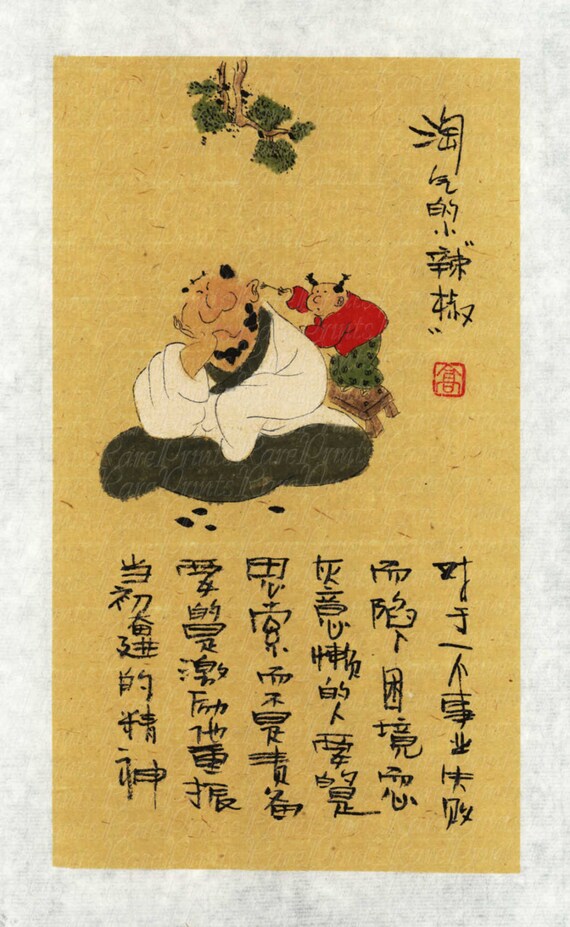 淘气的小“辣椒”
对于一个事业失败
而陷入困境而心
灰意懒的人要的是
思索而不是责备
要的是激励他重振
当初奋进的精神